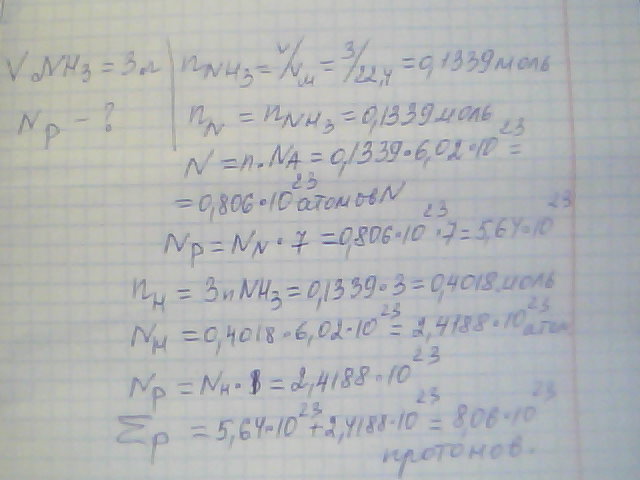 V NH₃ = 3л
Np - ?
nNH₃ = V/Vм = 3/22,4 = 0,1339 моль
nN = nNH₃ = 0,1339 моль
N = n·NA = 0,1339·6,02·10²³ =
= 0,806·10²³ атомов N
Np = NN·7 = 0,806·10²³·7 = 5,64·10²³
nH = 3nNH₃ = 0,1339·3 = 0,4018 моль
NH = 0,4018·6,02·10²³ = 2,4188·10²³ атом
Np = NH·1 = 2,4188·10²³
Σp = 5,64·10²³ + 2,4188·10²³ = 8,06·10²³
протонов.